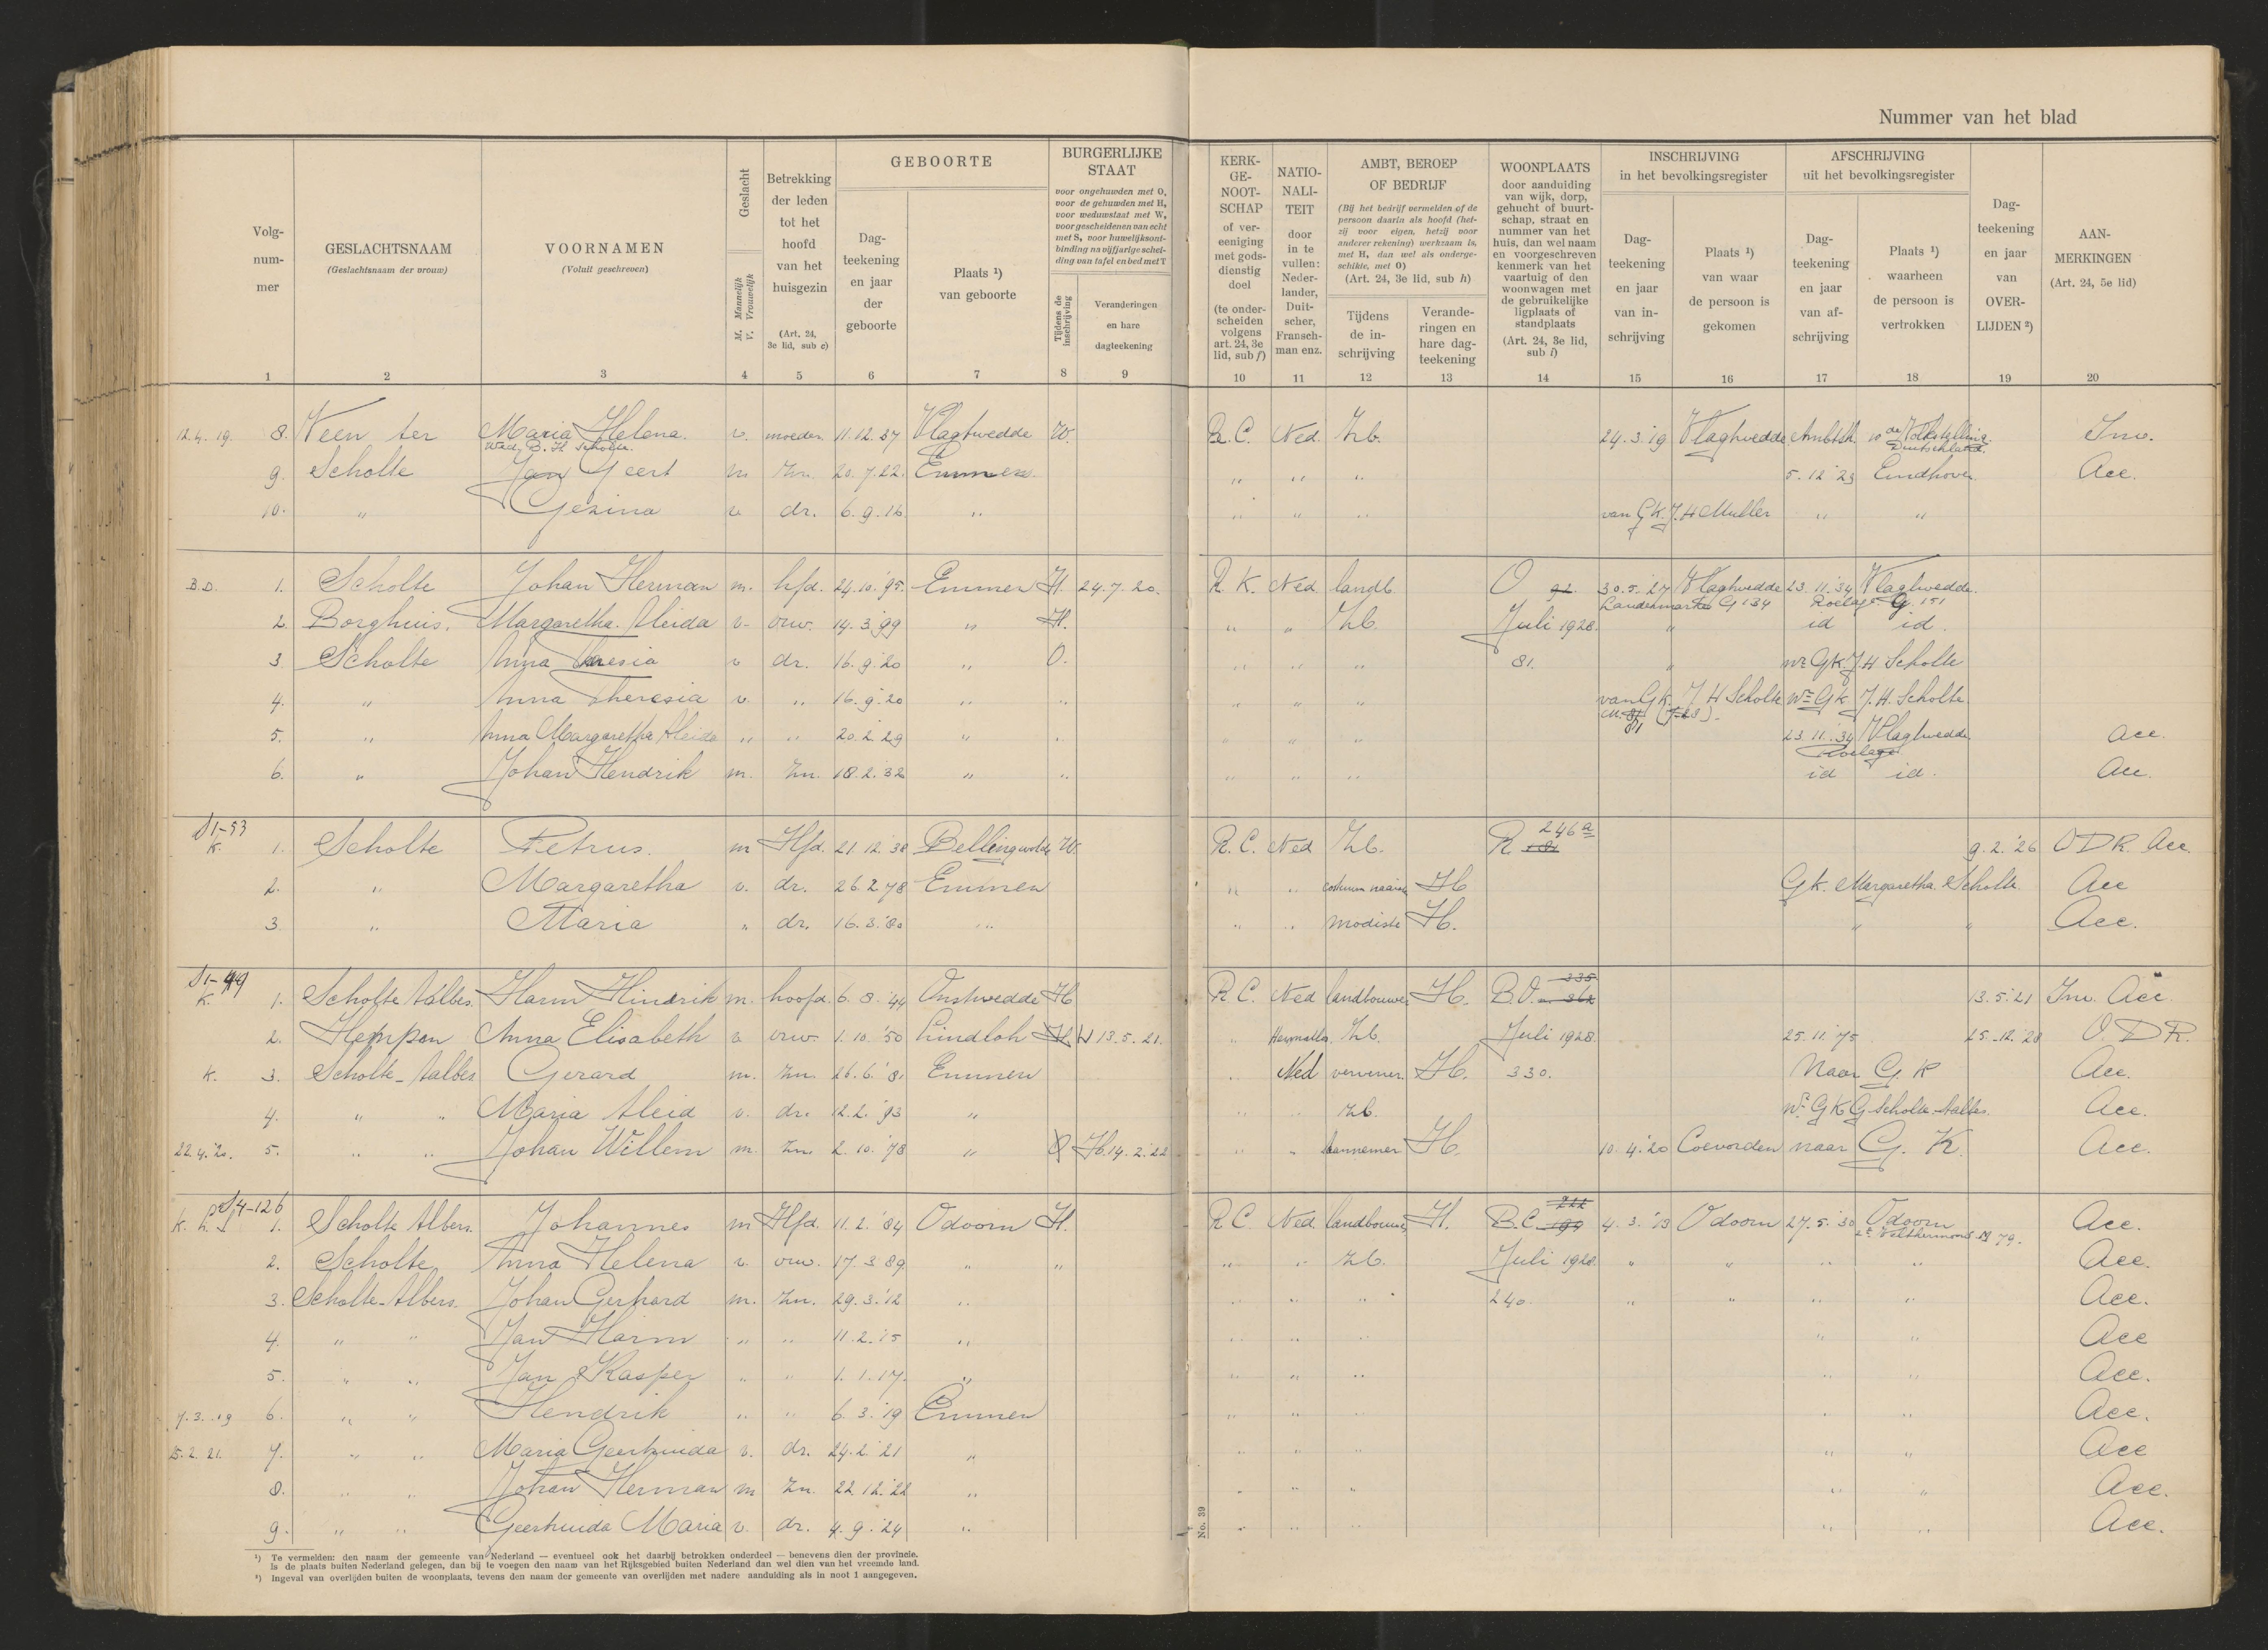 Nummer van het blad
Volg-
num-
mer
GESLACHTSNAAM
(Geslachtsnaam der vrouw)
VOORNAMEN
(Voluit geschreven)
Geslacht
M. Mannelijk
V. Vrouwelijk
Betrekking
der leden
tot het
hoofd
van het
huisgezin
(Art. 24,
3e lid, sub c)
GEBOORTE
Dag-
teekening
en jaar
der
geboorte
Plaats ¹)
van geboorte
BURGERLIJKE
STAAT
voor ongehuwden met O,
voor de gehuwden met H,
voor weduwstaat met W,
voor gescheidenen van echt
met S, voor huwelijksont-
binding na vijfjarige schei-
ding van tafel en bed met T
Tijdens de
inschrijving
Veranderingen
en hare
dagteekening
KERK-
GE-
NOOT-
SCHAP
of ver-
eeniging
met gods-
dienstig
doel
(te onder-
scheiden
volgens
art. 24, 3e
lid, sub f)
NATIO-
NALI-
TEIT
door
in te
vullen:
Neder-
lander,
Duit-
scher,
Fransch-
man enz.
AMBT, BEROEP
OF BEDRIJF
(Bij het bedrijf vermelden of de
persoon daarin als hoofd (het-
zij voor eigen, hetzij voor
anderer rekening) werkzaam is,
met H, dan wel als onderge-
schikte, met O)
(Art. 24, 3e lid, sub h)
Tijdens
de in-
schrijving
Verande-
ringen en
hare dag-
teekening
WOONPLAATS
door aanduiding
van wijk, dorp,
gehucht of buurt-
schap, straat en
nummer van het
huis, dan wel naam
en voorgeschreven
kenmerk van het
vaartuig of den
woonwagen met
de gebruikelijke
ligplaats of
standplaats
(Art. 24, 3e lid,
sub i)
INSCHRIJVING
in het bevolkingsregister
Dag-
teekening
en jaar
van in-
schrijving
Plaats ¹)
van waar
de persoon is
gekomen
AFSCHRIJVING
uit het bevolkingsregister
Dag-
teekening
en jaar
van af-
schrijving
Plaats ¹)
waarheen
de persoon is
vertrokken
Dag-
teekening
en jaar
van
OVER-
LIJDEN ²)
AAN-
MERKINGEN
(Art. 24, 5e lid)
1 2 3 4 5 6 7 8 9 10 11 12 13 14 15 16 17 18 19 20
12.4.19. 8. Veen ter Maria Helena. v. moeder 11.12.37 Vlagtwedde W. R.C. Ned. Zb. 24.3.19 Vlagtwedde Ambtsh. 10de Volkstelling. Inw.
Wed. B. H. Scholte. Duitschland.
9. Scholte Jan Geert m zn. 20.7.22. Emmen. " " " 5.12.'23 Eindhoven. Acc.
10. " Gezina v dr. 6.9.16 " " " " van GK. J. H Muller " "
B.D. 1. Scholte Johan Herman m. hfd. 24.10.'95. Emmen H. 24.7.20. R.K. Ned landb. O 30.5.'27 Vlagtwedde 23.11.'34 Vlagtwedde.
G 134 G. 151
2. Borghuis. Margaretha Aleida v. vrw. 14.3.99 " H. " " Zb. Juli 1928. " id id.
3. Scholte Anna Theresia v dr. 16.9.20 " O. " " " 81. " nr GK. J H Scholte
4. " Anna Theresia v. " 16.9.20 " " " " " van GK. J H Scholte nr GK J.H. Scholte
81
5. " Anna Margaretha Aleida " " 20.2.29 " " " " " 23.11.34 Vlagtwedde Acc.
6. " Johan Hendrik m. zn. 18.2.32 " " " " " id id. Acc.
S1-53
K. 1. Scholte Petrus. m Hfd. 21.12.38 Bellingwolde W. R.C. Ned Zb. R 246a 9.2.'26 ODR. Acc.
2. " Margaretha v. dr. 26.2.78 Emmen " " H Gk. Margaretha Scholte. Acc
3. " Maria " dr. 16.3.'80 " " " modiste H. " " Acc.
K. 1. Scholte Aalbes. Harm Hindrik m. hoofd. 6.8.'44 Onstwedde H R.C. Ned landbouwer H. B.O. 13.5.'21 Inw. Acc.
2. Hempen Anna Elisabeth v. vrw. 1.10.'50 Lindloh H. W 13.5.21. " Zb. Juli 1928. 25.11.'75 25.12.'28 O.D.R.
K. 3. Scholte-Aalbes Gerard m. zn. 26.6.'81 Emmen " Ned vervener. H. 330. Naar G.K Acc.
4. " " Maria Aleid v. dr. 12.2.'83 " " " zb. nr GK G Scholte-Aalbes. Acc.
22.4.'20. 5. " " Johan Willem m. zn. 2.10.'78 " O H. 14.2.'22 " " aannemer H. 10.4.'20 Coevorden naar G.K. Acc.
S4-126
1. Scholte Albers. Johannes m Hfd. 11.2.'84 Odoorn H. R C. Ned. landbouwer H. B.C. 4.3.'13 Odoorn 27.5.'30 Odoorn Acc.
79.
2. Scholte Anna Helena v. vrw. 17.3.89. " " " " zb. Juli 1928. " " " " Acc.
3. Scholte-Albers. Johan Gerhard m. zn. 29.3.'12 " " " " 240. " " " " Acc.
4. " " Jan Harm " " 11.2.'15 " " " " " " Acc
5. " " Jan Kasper " " 1.1.17. " " " " " " Acc.
7.3.19 6. " " Hendrik " " 6.3.'19 Emmen " " " " " Acc.
7. " " Maria Geertruida v. dr. 24.2.21 " " " " " " Acc
8. " " Johan Herman m zn. 22.12.'22 " " " " " " Acc.
9. " " Geertruida Maria v. dr. 4.9.'24 " " " " " " Acc.
No. 39
¹) Te vermelden: den naam der gemeente van Nederland — eventueel ook het daarbij betrokken onderdeel — benevens dien der provincie.
Is de plaats buiten Nederland gelegen, dan bij te voegen den naam van het Rijksgebied buiten Nederland dan wel dien van het vreemde land.
²) Ingeval van overlijden buiten de woonplaats, tevens den naam der gemeente van overlijden met nadere aanduiding als in noot 1 aangegeven.